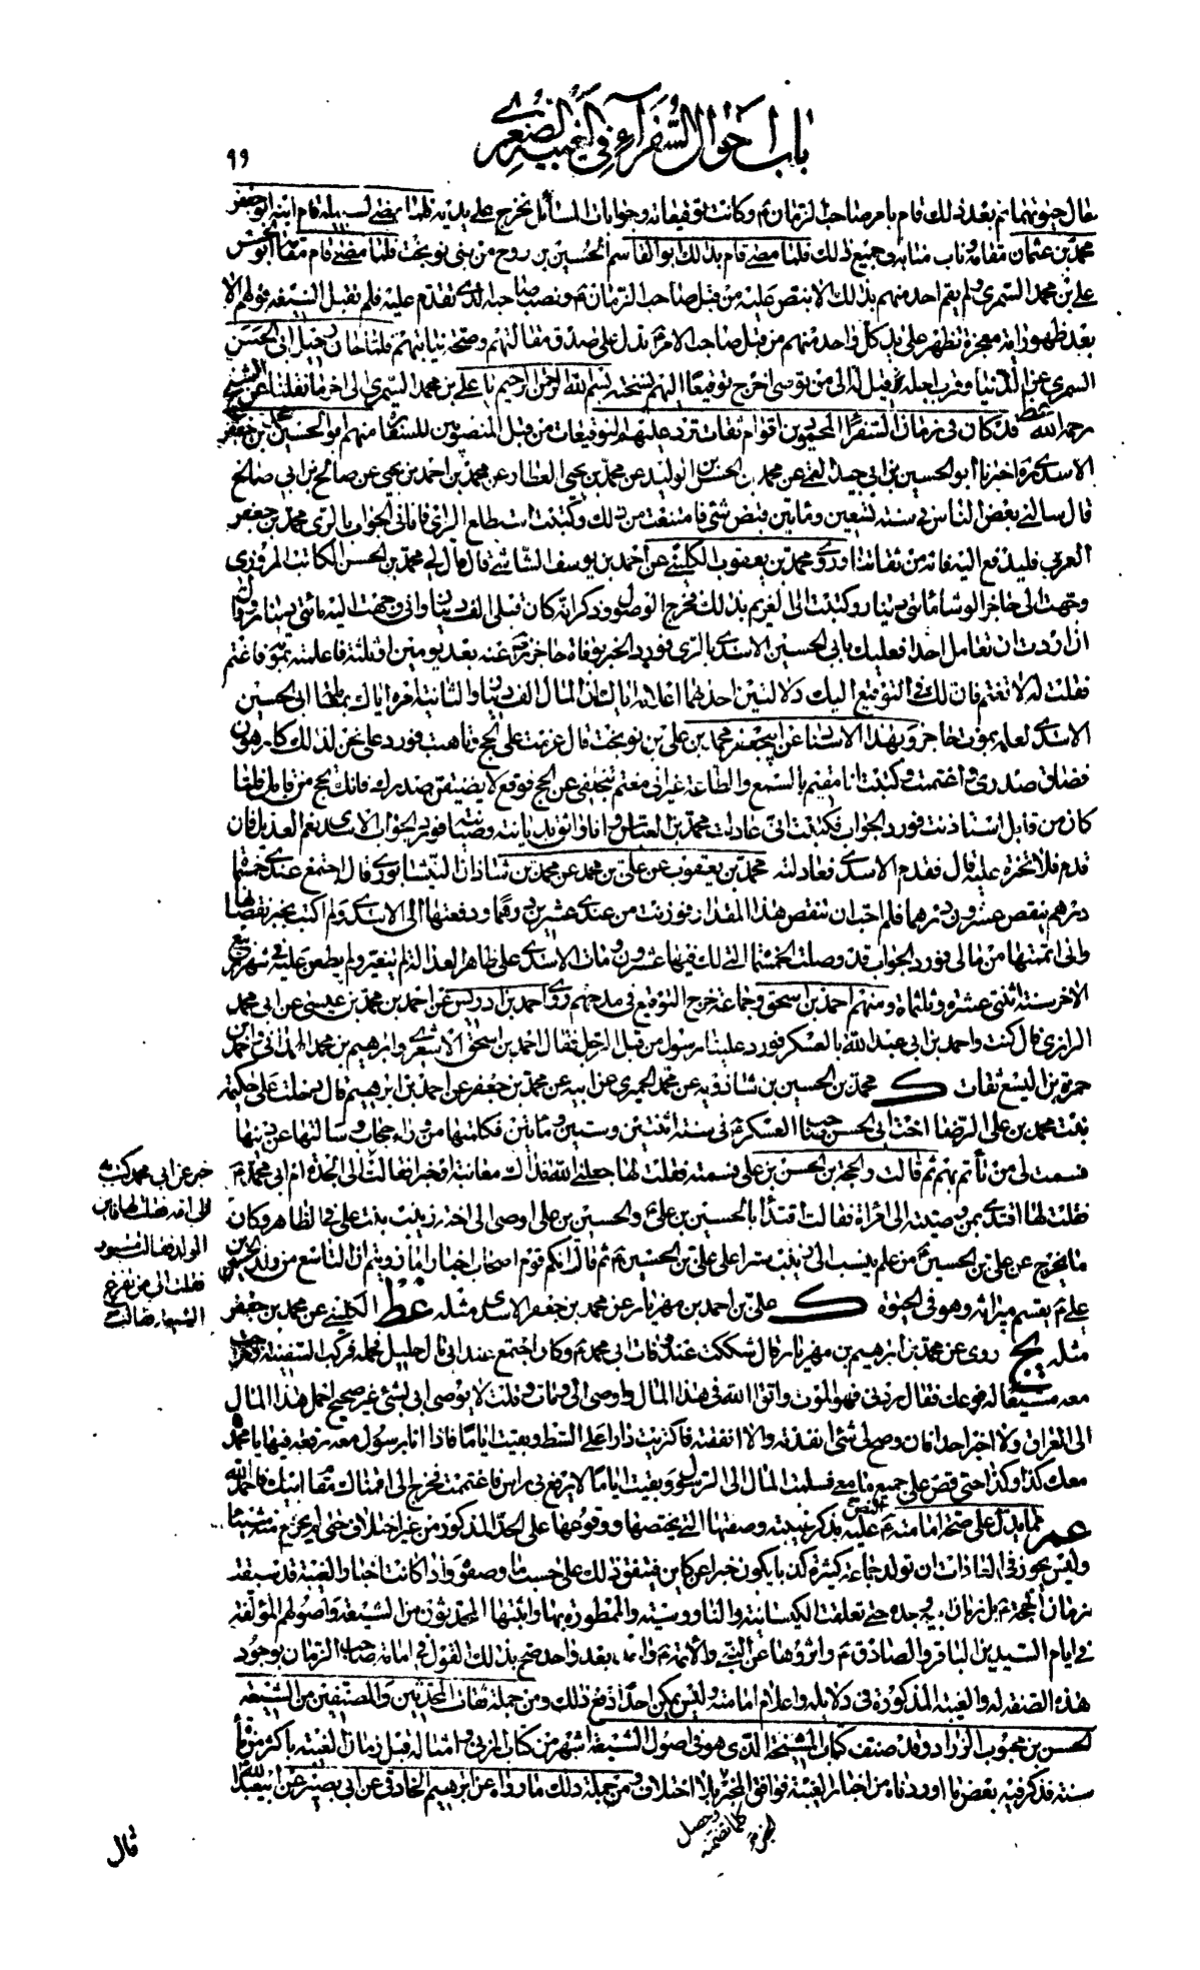 باب احوال السفرآء في الغيبة الصغرى
٩٩
حال حيوتهما ثم بعد ذلك قام بامر صاحب الزمان ع وكانت توقيعاته وجوابات المسائل تخرج على يديه فلما مضى لسبيله قام ابنه ابو جعفر
محمد بن عثمان مقامه وناب منابه في جميع ذلك فلما مضى قام بذلك ابو القاسم الحسين بن روح من بني نوبخت فلما مضى قام مقامه ابو الحسن
علي بن محمد السمري ولم يقم احد منهم بذلك الا بنص عليه من قبل صاحب الزمان ع ونصب صاحبه الذي تقدم عليه فلم تقبل الشيعة قولهم الا
بعد ظهور اية معجزة تظهر على يد كل واحد منهم من قبل صاحب الامر ع تدل على صدق مقالتهم وصحة نيابتهم فلما حان رحيل ابي الحسن
السمري عن الدنيا وقرب اجله قيل له الى من توصي اخرج توقيعا اليهم نسخته بسم الله الرحمن الرحيم يا علي بن محمد السمري الى اخر ما نقلنا عن الشيخ
رحمه الله غط قد كان في زمان السفراء المحمودين اقوام ثقات ترد عليهم التوقيعات من قبل المنصوبين للسفارة منهم ابو الحسين محمد بن جعفر
الاسدي ره اخبرنا ابو الحسين بن ابي جيد القمي عن محمد بن الحسن بن الوليد عن محمد بن يحيى العطار عن محمد بن احمد بن يحيى عن صالح بن ابي صالح
قال سالني بعض الناس في سنة تسعين ومأتين قبض شئ فامتنعت من ذلك وكتبت استطلع الراي فاتاني الجواب بالري محمد بن جعفر
العربي فليدفع اليه فانه من ثقاتنا وروى محمد بن يعقوب الكليني عن احمد بن يوسف الشاشي قال قال لي محمد بن الحسن الكاتب المروزي
وجهت الى حاجز الوشا مائتي دينار وكتبت الى الغريم بذلك فخرج الوصول وذكر انه كان قبلي الف دينار واني وجهت اليه مائتي دينار وقال
ان اردت ان تعامل احدا فعليك بابي الحسين الاسدي بالري فورد الخبر بوفاة حاجز رض عنه بعد يومين او ثلثة فاعلمته بموته فاغتم
فقلت له لا تغتم فان لك في التوقيع اليك دلالتين احداهما اعلامه اياك ان المال الف دينار والثانية امره اياك بمعاملة ابي الحسين
الاسدي لعلمه بموت حاجز وبهذا الاسناد عن ابي جعفر محمد بن علي بن نوبخت قال عزمت على الحج وتاهبت فورد علي نحن لذلك كارهون
فضاق صدري واغتممت وكتبت انا مقيم بالسمع والطاعة غير اني مغتم بتخلفي عن الحج فوقع لا يضيقن صدرك فانك تحج من قابل فلما
كان من قابل استاذنت فورد الجواب فكتبت اني عادلت محمد بن العباس وانا واثق بديانته وصيانته فورد الجواب الاسدي نعم العديل فان
قدم فلا تختر عليه قال فقدم الاسدي فعادلته محمد بن يعقوب عن علي بن محمد عن محمد بن شاذان النيشابوري قال اجتمع عندي خمسمائة
درهم ينقص عشرون درهما فلم احب ان تنقص هذا المقدار فوزنت من عندي عشرين درهما ودفعتها الى الاسدي ولم اكتب بخبر نقصانها
واني اتممتها من مالي فورد الجواب قد وصلت الخمسمائة التي لك فيها عشرون ومات الاسدي على ظاهر العدالة لم يتغير ولم يطعن عليه في شهر ربيع
الاخر سنة اثنتي عشرة وثلثمائة ومنهم احمد بن اسحق وجماعة خرج التوقيع في مدحهم روى احمد بن ادريس عن احمد بن محمد بن عيسى عن ابي محمد
الرازي قال كنت واحمد بن ابي عبد الله بالعسكر فورد علينا رسول من قبل الرجل فقال احمد بن اسحق الاشعري وابرهيم بن محمد الهمداني واحمد بن
حمزة بن اليسع ثقات ك محمد بن الحسين بن شاذويه عن محمد الحميري عن ابيه عن محمد بن جعفر عن احمد بن ابرهيم قال دخلت على حكيمة
بنت محمد بن علي الرضا اخت ابي الحسن صاحب العسكر ع في سنة اثنتين وستين ومأتين فكلمتها من وراء حجاب وسالتها عن دينها
فسمت لي من تأتم بهم ثم قالت والحجة بن الحسن بن علي فسمته فقلت لها جعلني الله فداك معاينة او خبرا فقالت
خبر عن ابي محمد كتب به
الى امه فقلت لها فاين
الولد فقالت مستور
فقلت الى من تفزع
الشيعة فقالت
الى الجدة ام ابي محمد ع
فقلت لها اقتدي بمن وصيته الى امراة فقالت اقتداء بالحسين بن علي ع والحسين بن علي اوصى الى اخته زينب بنت علي في الظاهر وكان
ما يخرج عن علي بن الحسين ع من علم ينسب الى زينب سترا على علي بن الحسين ع ثم قالت انكم قوم اصحاب اخبار اما رويتم ان التاسع من ولد الحسين بن
علي ع يقسم ميراثه وهو في الحيوة ك علي بن احمد بن مهزيار عن محمد بن جعفر الاسدي مثله غط الكليني عن محمد بن جعفر
مثله يج روى عن محمد بن ابرهيم بن مهزيار قال شككت عند وفات ابي محمد ع وكان اجتمع عند ابي مال جليل فحمله فركب السفينة وخرجت
معه مشيعا له فوعك فقال ردني فهو الموت واتق الله في هذا المال واوصى الي ومات وقلت لا يوصي ابي بشئ غير صحيح احمل هذا المال
الى العراق ولا اخبر احدا فان وضح لي شئ انفذته والا انفقته فاكتريت دارا على الشط وبقيت اياما فاذا انا برسول معه رقعة فيها يا محمد
معك كذا وكذا حتى قص علي جميع ما معي فسلمت المال الى الرسول وبقيت اياما لا يرفع بي راس فاغتممت فخرج الي اقمناك مقام ابيك فاحمد الله
عم مما يدل على صحة امامته ع النص عليه بذكر غيبته وصفتها التي يختصها ووقوعها على الحد المذكور من غير اختلاف حتى لم يخرم منه شيئا
وليس يجوز في العادات ان تولد جماعة كثيرة كذبا يكون خبرا عن كاين فيتفق ذلك على حسب ما وصفوه واذا كانت اخبار الغيبة قد سبقت
زمان الحجة ع بل زمان ابيه وجده حتى تعلقت الكيسانية والناووسية والممطورة بها واثبتها المحدثون من الشيعة واصولهم المؤلفة
في ايام السيدين الباقر والصادق ع واثروها عن النبي والائمة ع واحد بعد واحد صح بذلك القول في امامة صاحب الزمان بوجود
هذه الصفة له والغيبة المذكورة في دلايله واعلام امامته وليس يمكن احدا دفع ذلك ومن جملة ثقات المحدثين والمصنفين من الشيعة
الحسن بن محبوب الزراد وقد صنف كتاب المشيخة الذي هو في اصول الشيعة اشهر من كتاب المزني وامثاله قبل زمان الغيبة باكثر من مائة
سنة فذكر فيه بعض ما اوردناه من اخبار الغيبة فوافق الخبر
المخبر وحصل كلما تضمنه
بلا اختلاف ومن جملة ذلك ما رواه عن ابرهيم الخارقي عن ابي بصير عن ابي عبد الله
قال